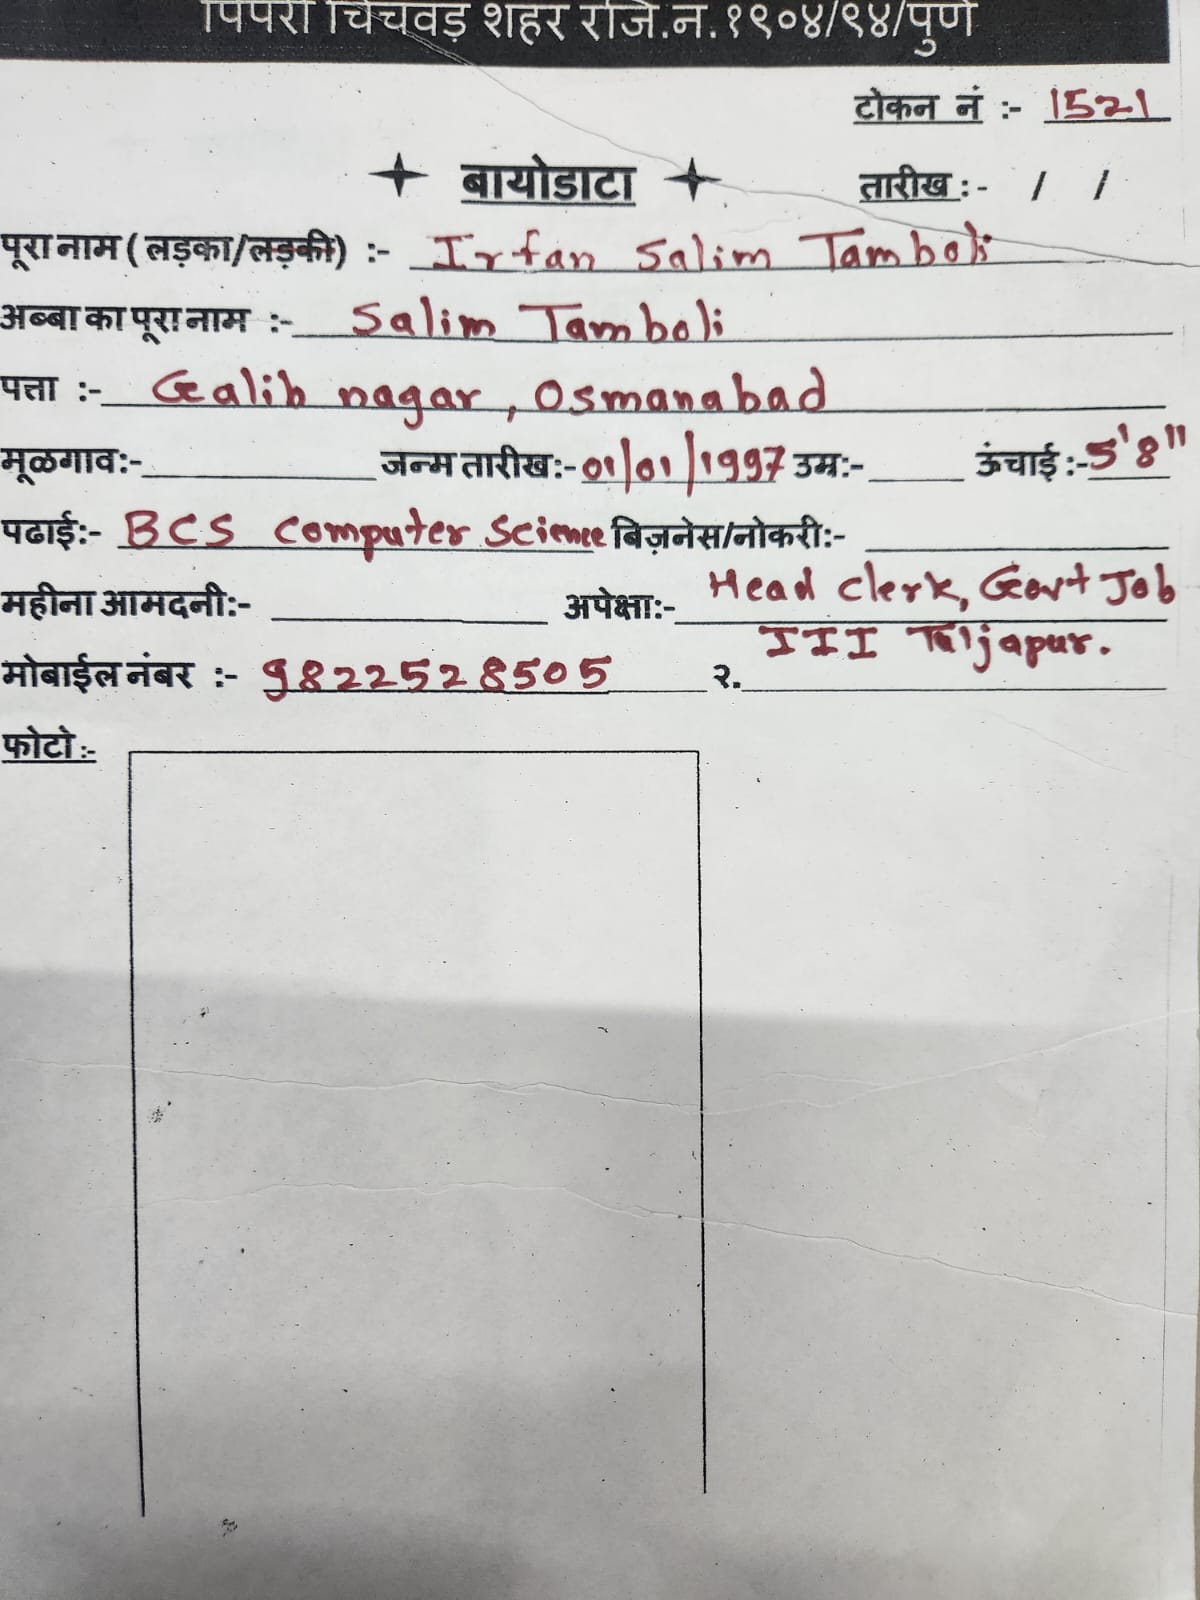 पिंपरी चिंचवड शहर रजि.नं.१९०४/९४/पुणे
टोकन नं :- 1521
बायोडाटा तारीख :- / /
पूरा नाम ( लड़का/लड़की) :- Irfan Salim Tamboli
अब्बा का पूरा नाम :- Salim Tamboli
पत्ता :- Galib nagar, Osmanabad
मूळगाव:- जन्म तारीख:- 01/01/1997 उम्र:- ऊंचाई :- 5'8"
पढाई:- BCS Computer Science बिज़नेस/नोकरी:-
महीना आमदनी:- अपेक्षा:- Head Clerk, Govt Job
III Tuljapur.
मोबाईल नंबर :- 9822528505 २.
फोटो :-